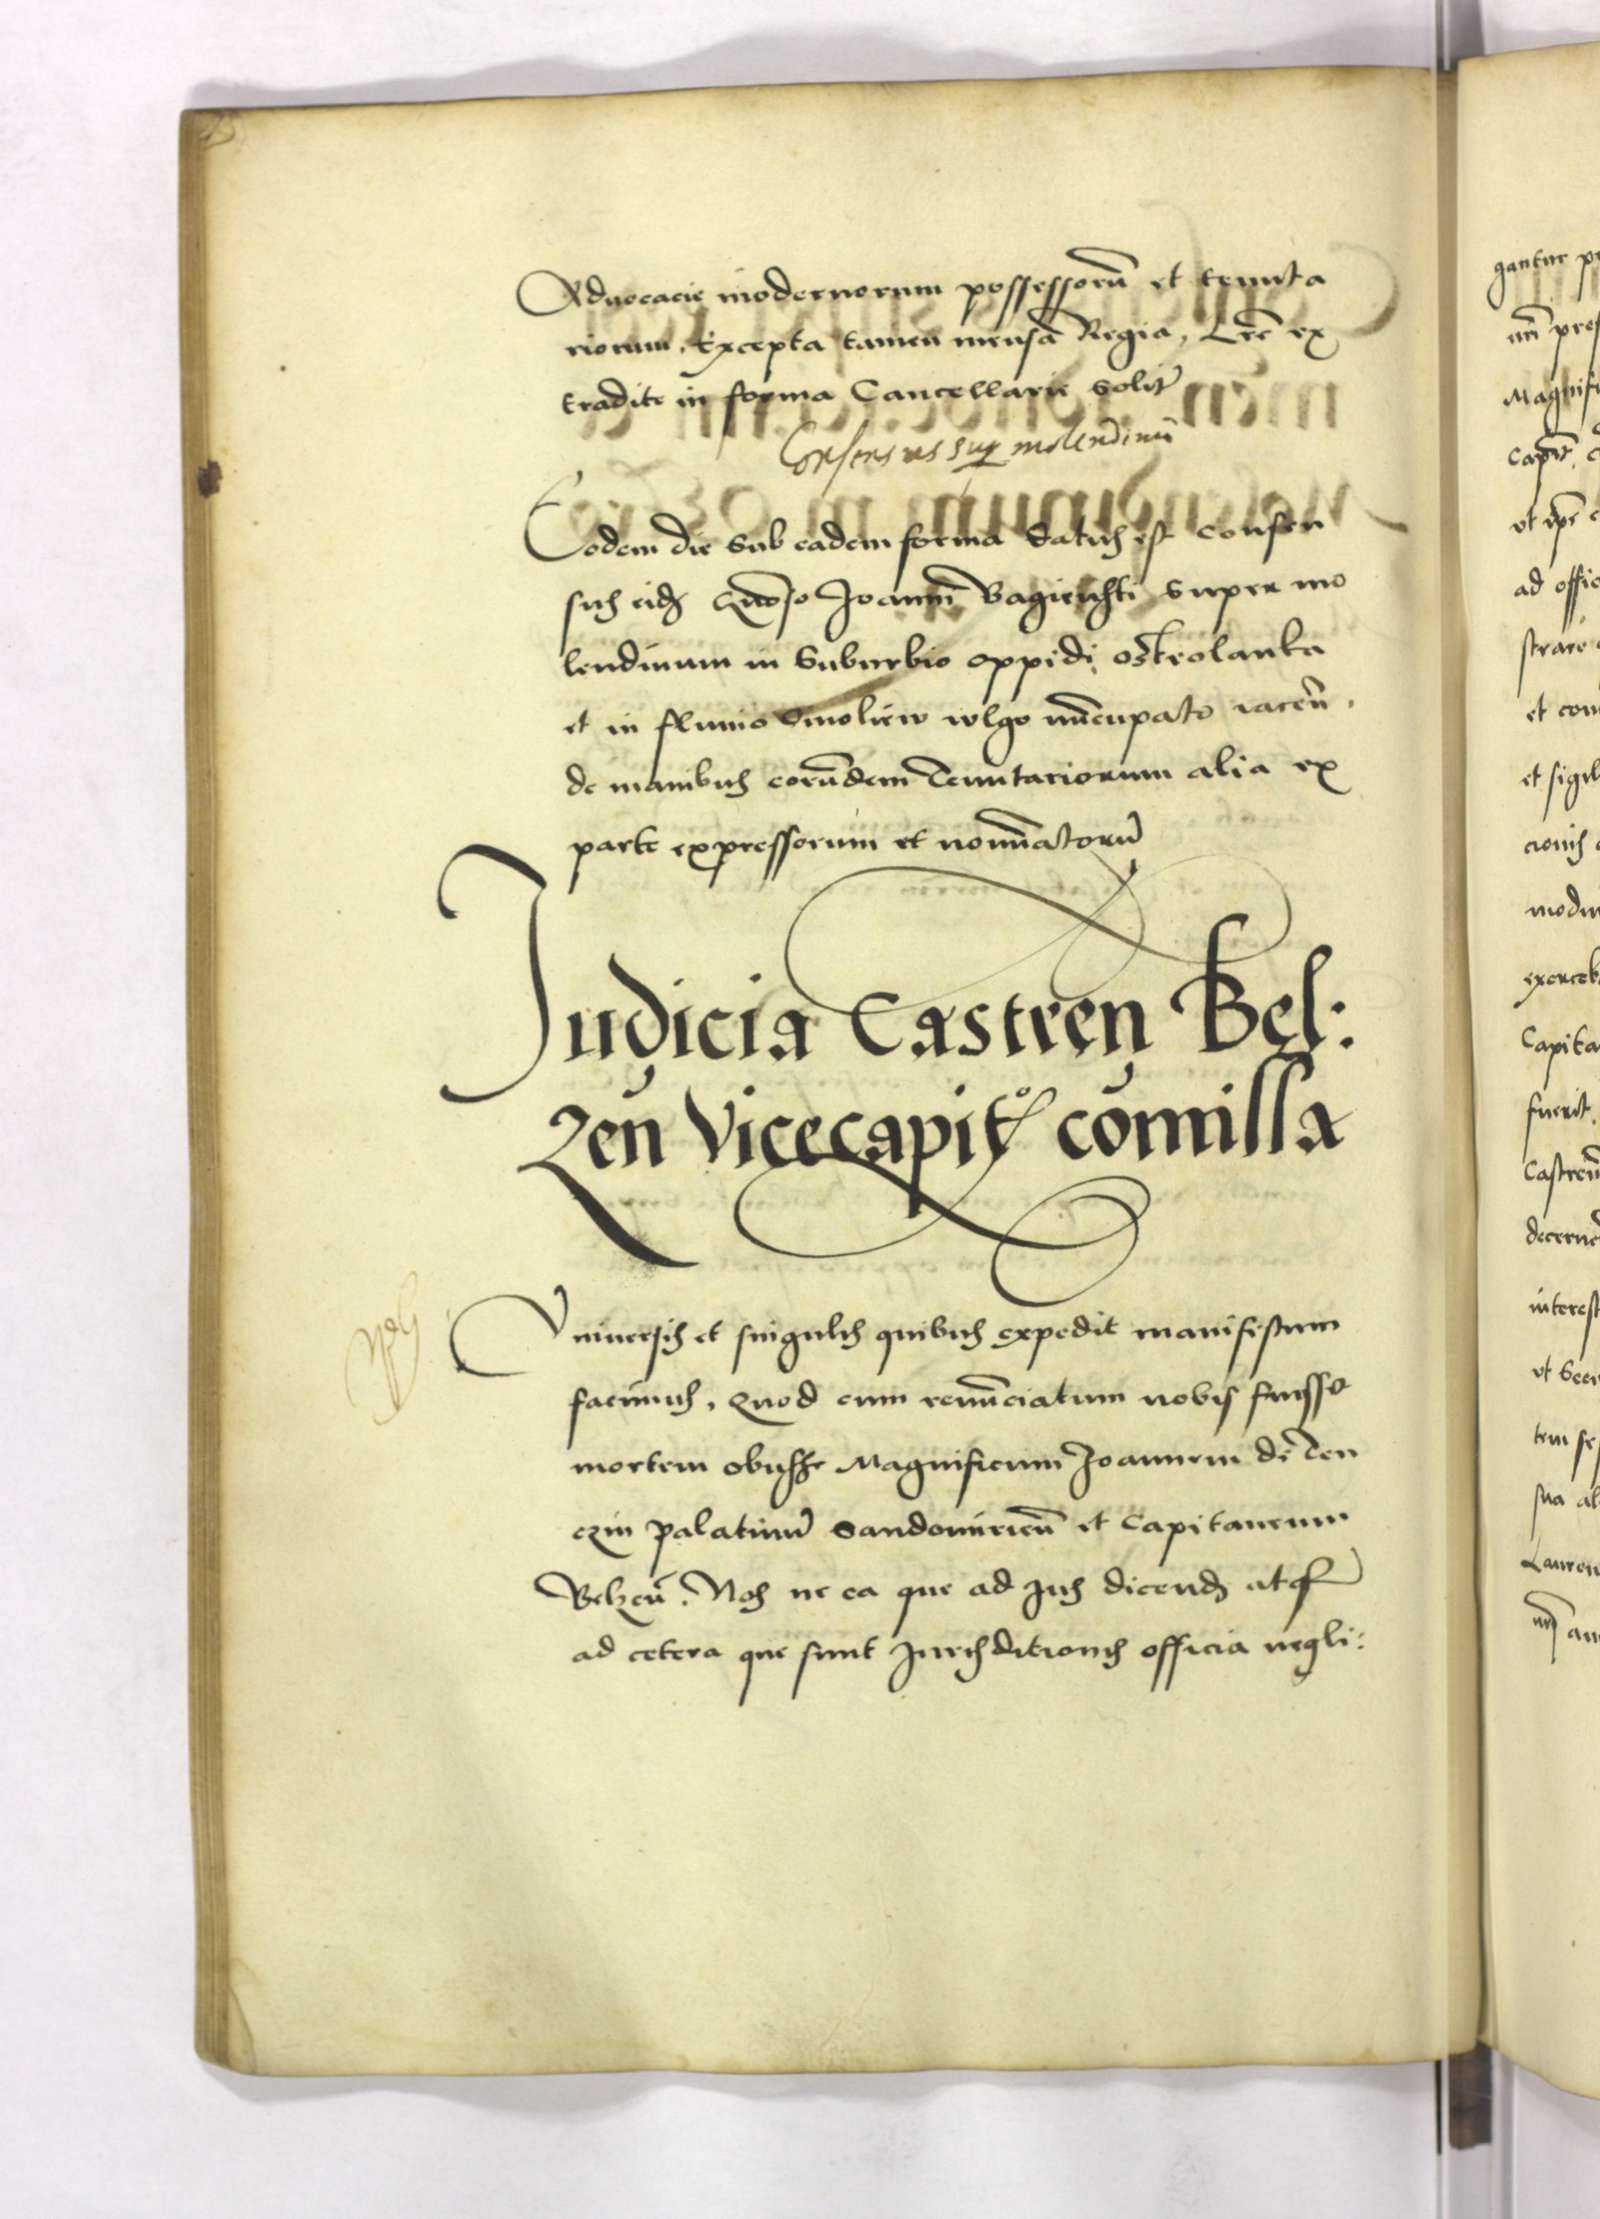 Advocacie modernorum possessorū et tenuta
riorum. Excepta tamen mensa Regia. Lrē ex
tradite in forma Cancellarie solit̄
Consensus sup molendinū
Eodem die sub eadem forma datus est consen
sus eidē Joanni super mo
lendinum in Suburbio oppidi Ostrolanka
et in fluvio Omoliew vlgo nūcupato iaceñ.
de manibus eorūdem Tenutariorum alia ex
parte expressorum et nominatorū
Judicia Castreñ Bel:
Zeñ Vicecapitº comissa
Vniversis et singulis quibus expedit manifestum
facimus. Quod cum renūciatum nobis fuisset
mortem obiisse Magnificum Joannem de Ten
czin palatinū Sandomirieñ et Capitaneum
Belzeñ. Nos ne ea que ad Jus dicend atq
ad cetera que sunt Jurisditionis officia negli:
gantur
Magnifi
ad offic
et sigil
modu
exerceb
Capita
fuerit.
Castreñ
interest
sua
Lauren